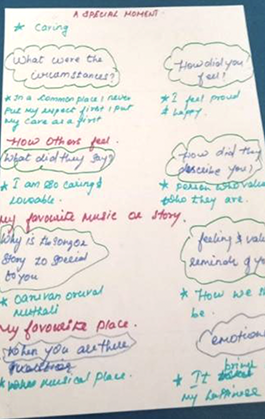 A SPECIAL MOMENT.
* caring
What were the
circumstances?
How did you
feel?
* In a common place i never
put my respect first i put
my care as a first
* I feel proud
& happy.
How others feel.
What did they say?
How did they
describe you?
* I am so caring &
loveable.
* person who value
who they are.
My favourite music or story.
Why is the song or
story so special
to you
feeling & value
reminds of you
*
* How we s
be.
My favourite place.
When you are there
emotions
* musical place.
* It bring
my happiness